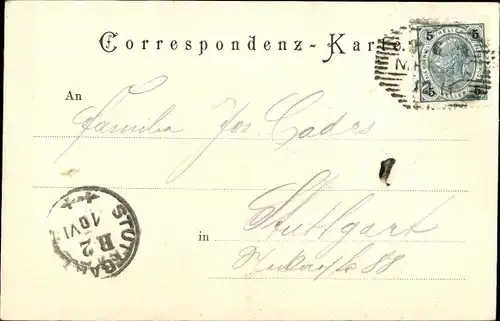 Correspondenz-Karte.
5 5
5 HELLER 5
An
Familie Jos. Cades
Stuttgart
in
88
STUTTGART
10 VI
2